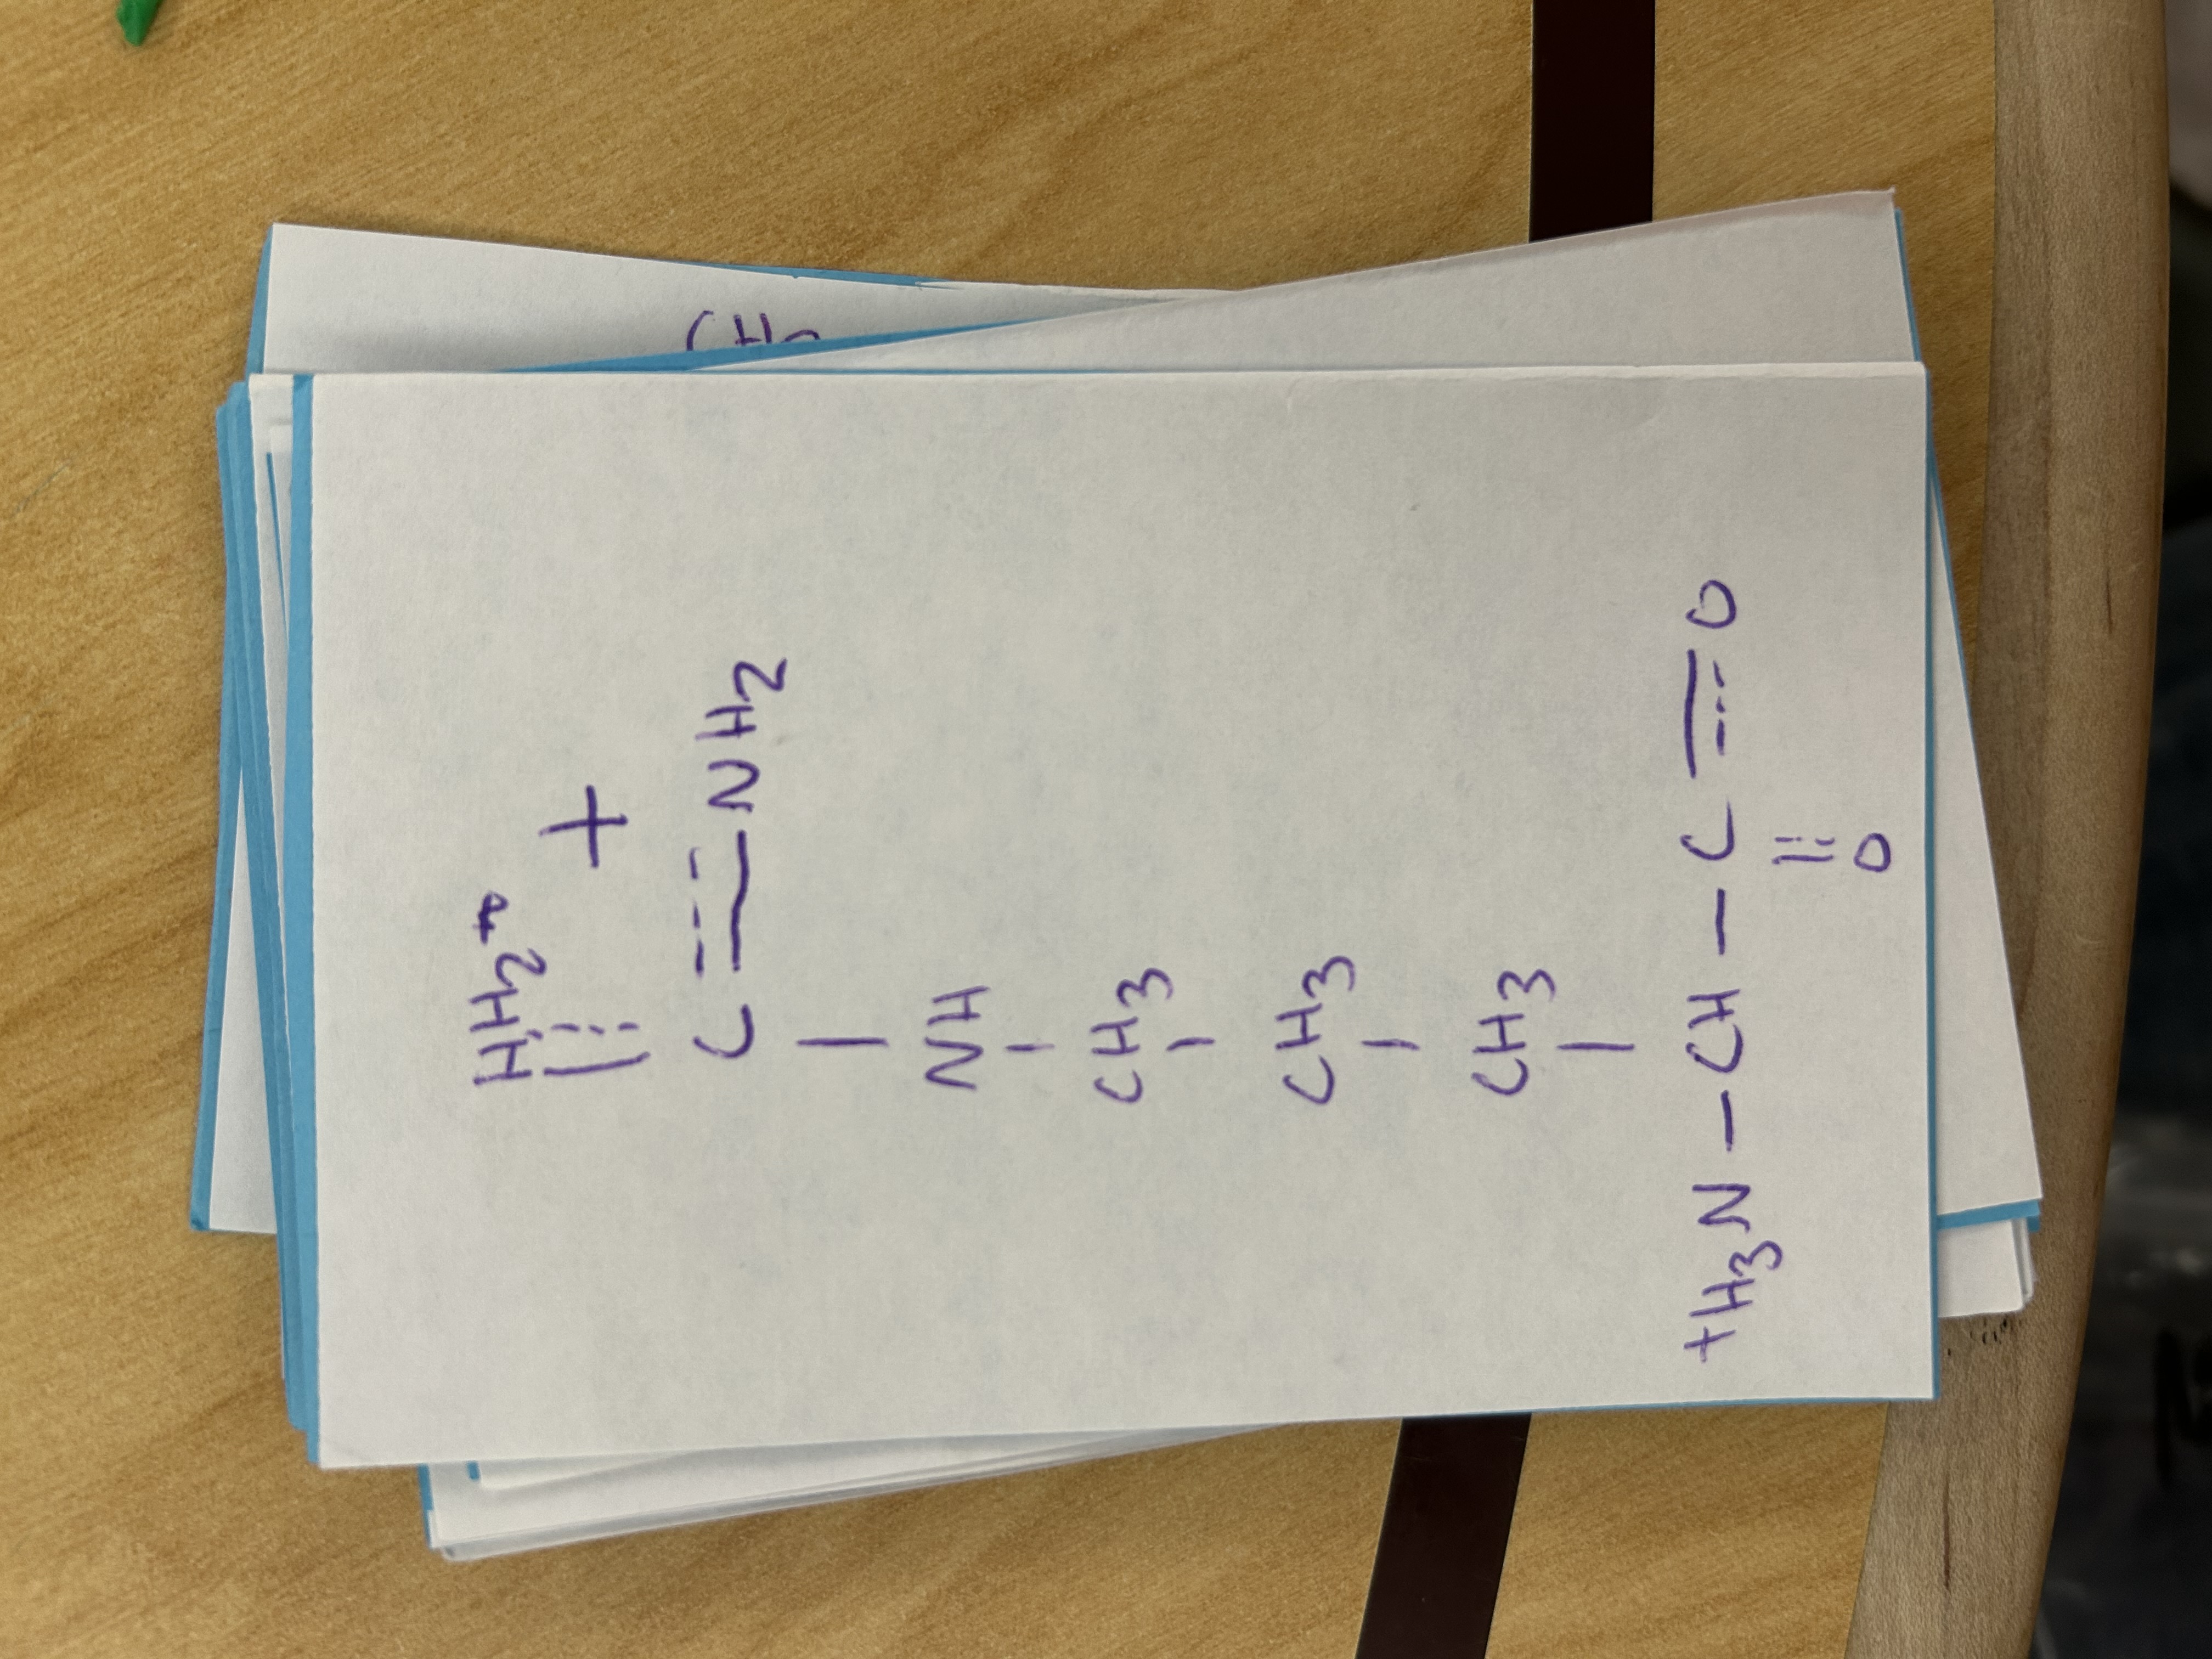 HH2+
+
C=NH2
NH
CH3
CH3
CH3
+H3N-CH-C=O
O